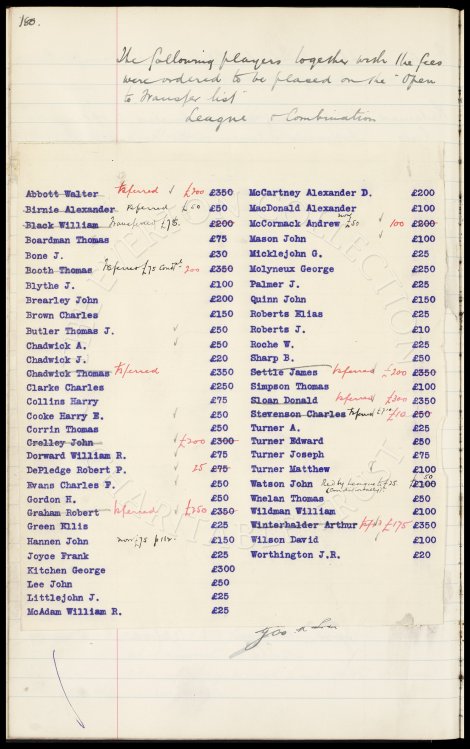 180.
The following players together with the fees
were ordered to be placed on the "Open
to Transfer list"
League & Combination
Abbott Walter tsferred £200 £350
Birnie Alexander tsferred £50 £50
Black William Transferred £75. £200
Boardman Thomas £75
Bone J. £30
Booth Thomas tsferred £75 200 £350
Blythe J. £100
Brearley John £200
Brown Charles £150
Butler Thomas J. £50
Chadwick A. £50
Chadwick J. £20
Chadwick Thomas tsferred £350
Clarke Charles £250
Collins Harry £75
Cooke Harry E. £50
Corrin Thomas £50
Crelley John £200 £300
Dorward William R. £75
DePledge Robert P. 25 £75
Evans Charles F. £50
Gordon H. £50
Graham Robert tsferred £250 £350
Green Ellis £25
Hannen John now £75 £150
Joyce Frank £25
Kitchen George £300
Lee John £50
Littlejohn J. £25
McAdam William R. £25
McCartney Alexander D. £200
MacDonald Alexander £100
McCormack Andrew now £50 100 £200
Mason John £100
Micklejohn G. £25
Molyneux George £250
Palmer J. £25
Quinn John £150
Roberts Elias £25
Roberts J. £10
Roche W. £25
Sharp B. £50
Settle James tsferred £200 £350
Simpson Thomas £100
Sloan Donald tsferred £300 £350
Stevenson Charles tsferred £10 £50
Turner A. £25
Turner Edward £50
Turner Joseph £75
Turner Matthew £100
Watson John Red by League to £25 50 £100
Whelan Thomas £50
Wildman William £100
Winterhalder Arthur £175 £350
Wilson David £100
Worthington J.R. £20